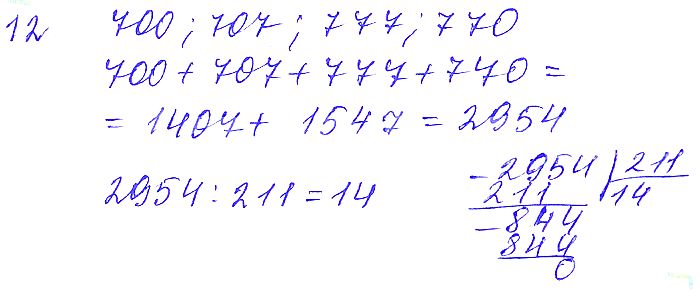 12 700; 707; 777; 770
700 + 707 + 777 + 770 =
= 1407 + 1547 = 2954
2954 : 211 = 14
- 2954 | 211
211 14
- 844
844
0